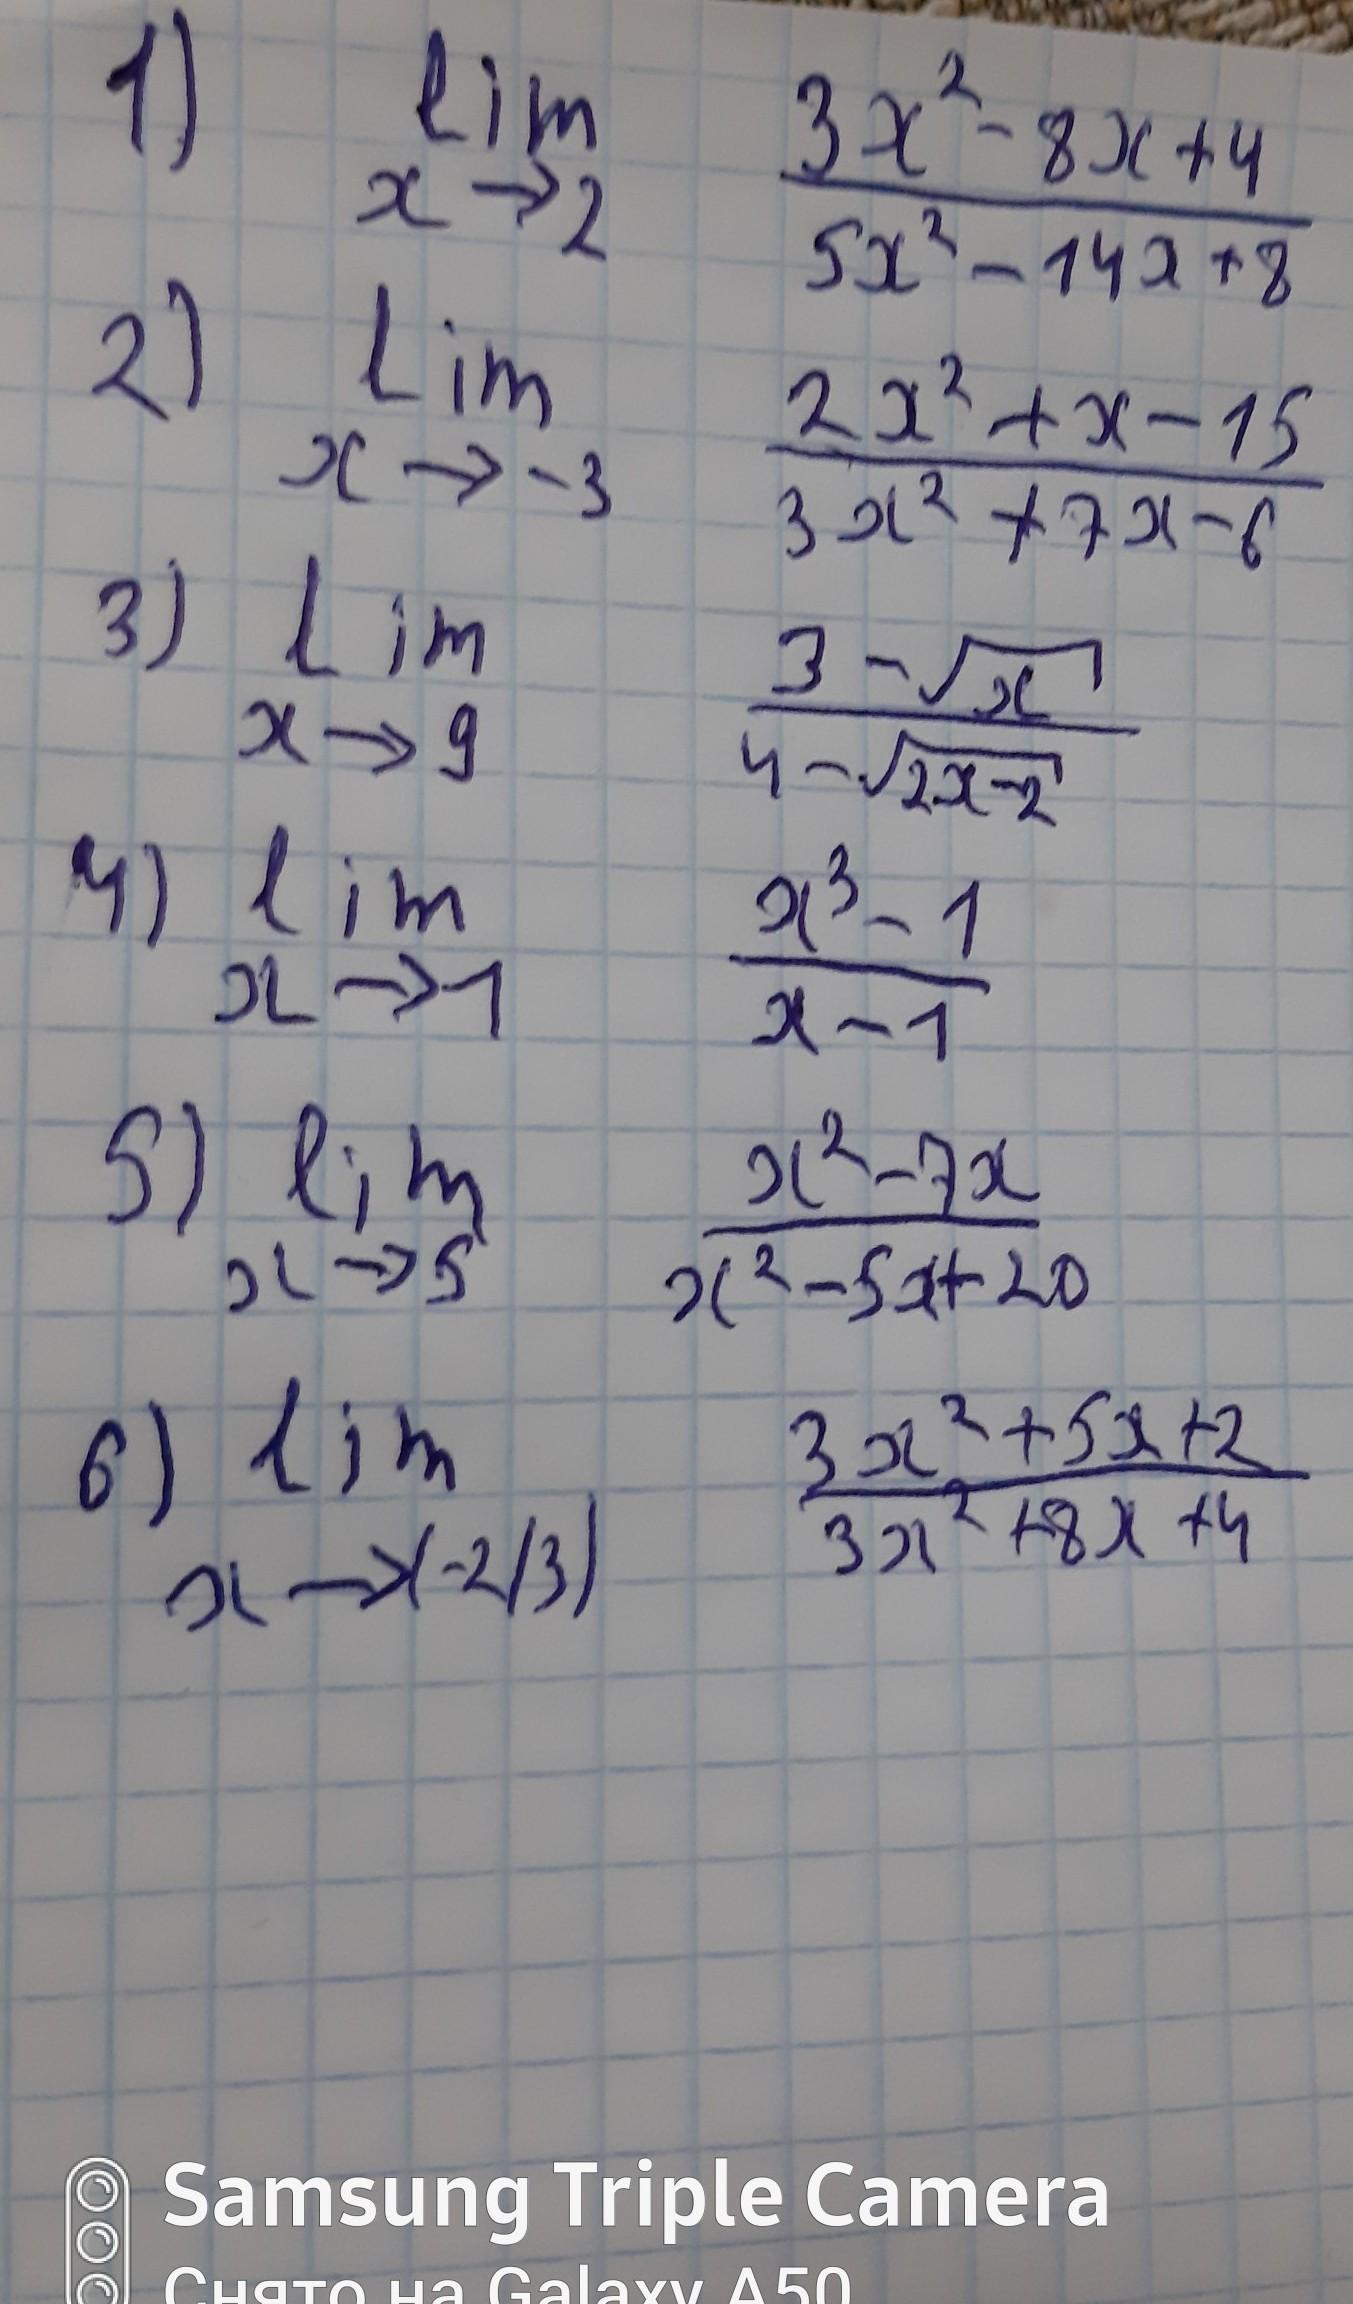 1) lim 3x² - 8x + 4
x → 2 5x² - 14x + 8
2) lim 2x² + x - 15
x → -3 3x² + 7x - 6
3) lim 3 - √x
x → 9 4 - √2x-2
4) lim x³ - 1
x → 1 x - 1
5) lim x² - 7x
x → 5 x² - 5x + 20
6) lim 3x² + 5x + 2
x → (-2/3) 3x² + 8x + 4
Samsung Triple Camera
Снято на Galaxy A50